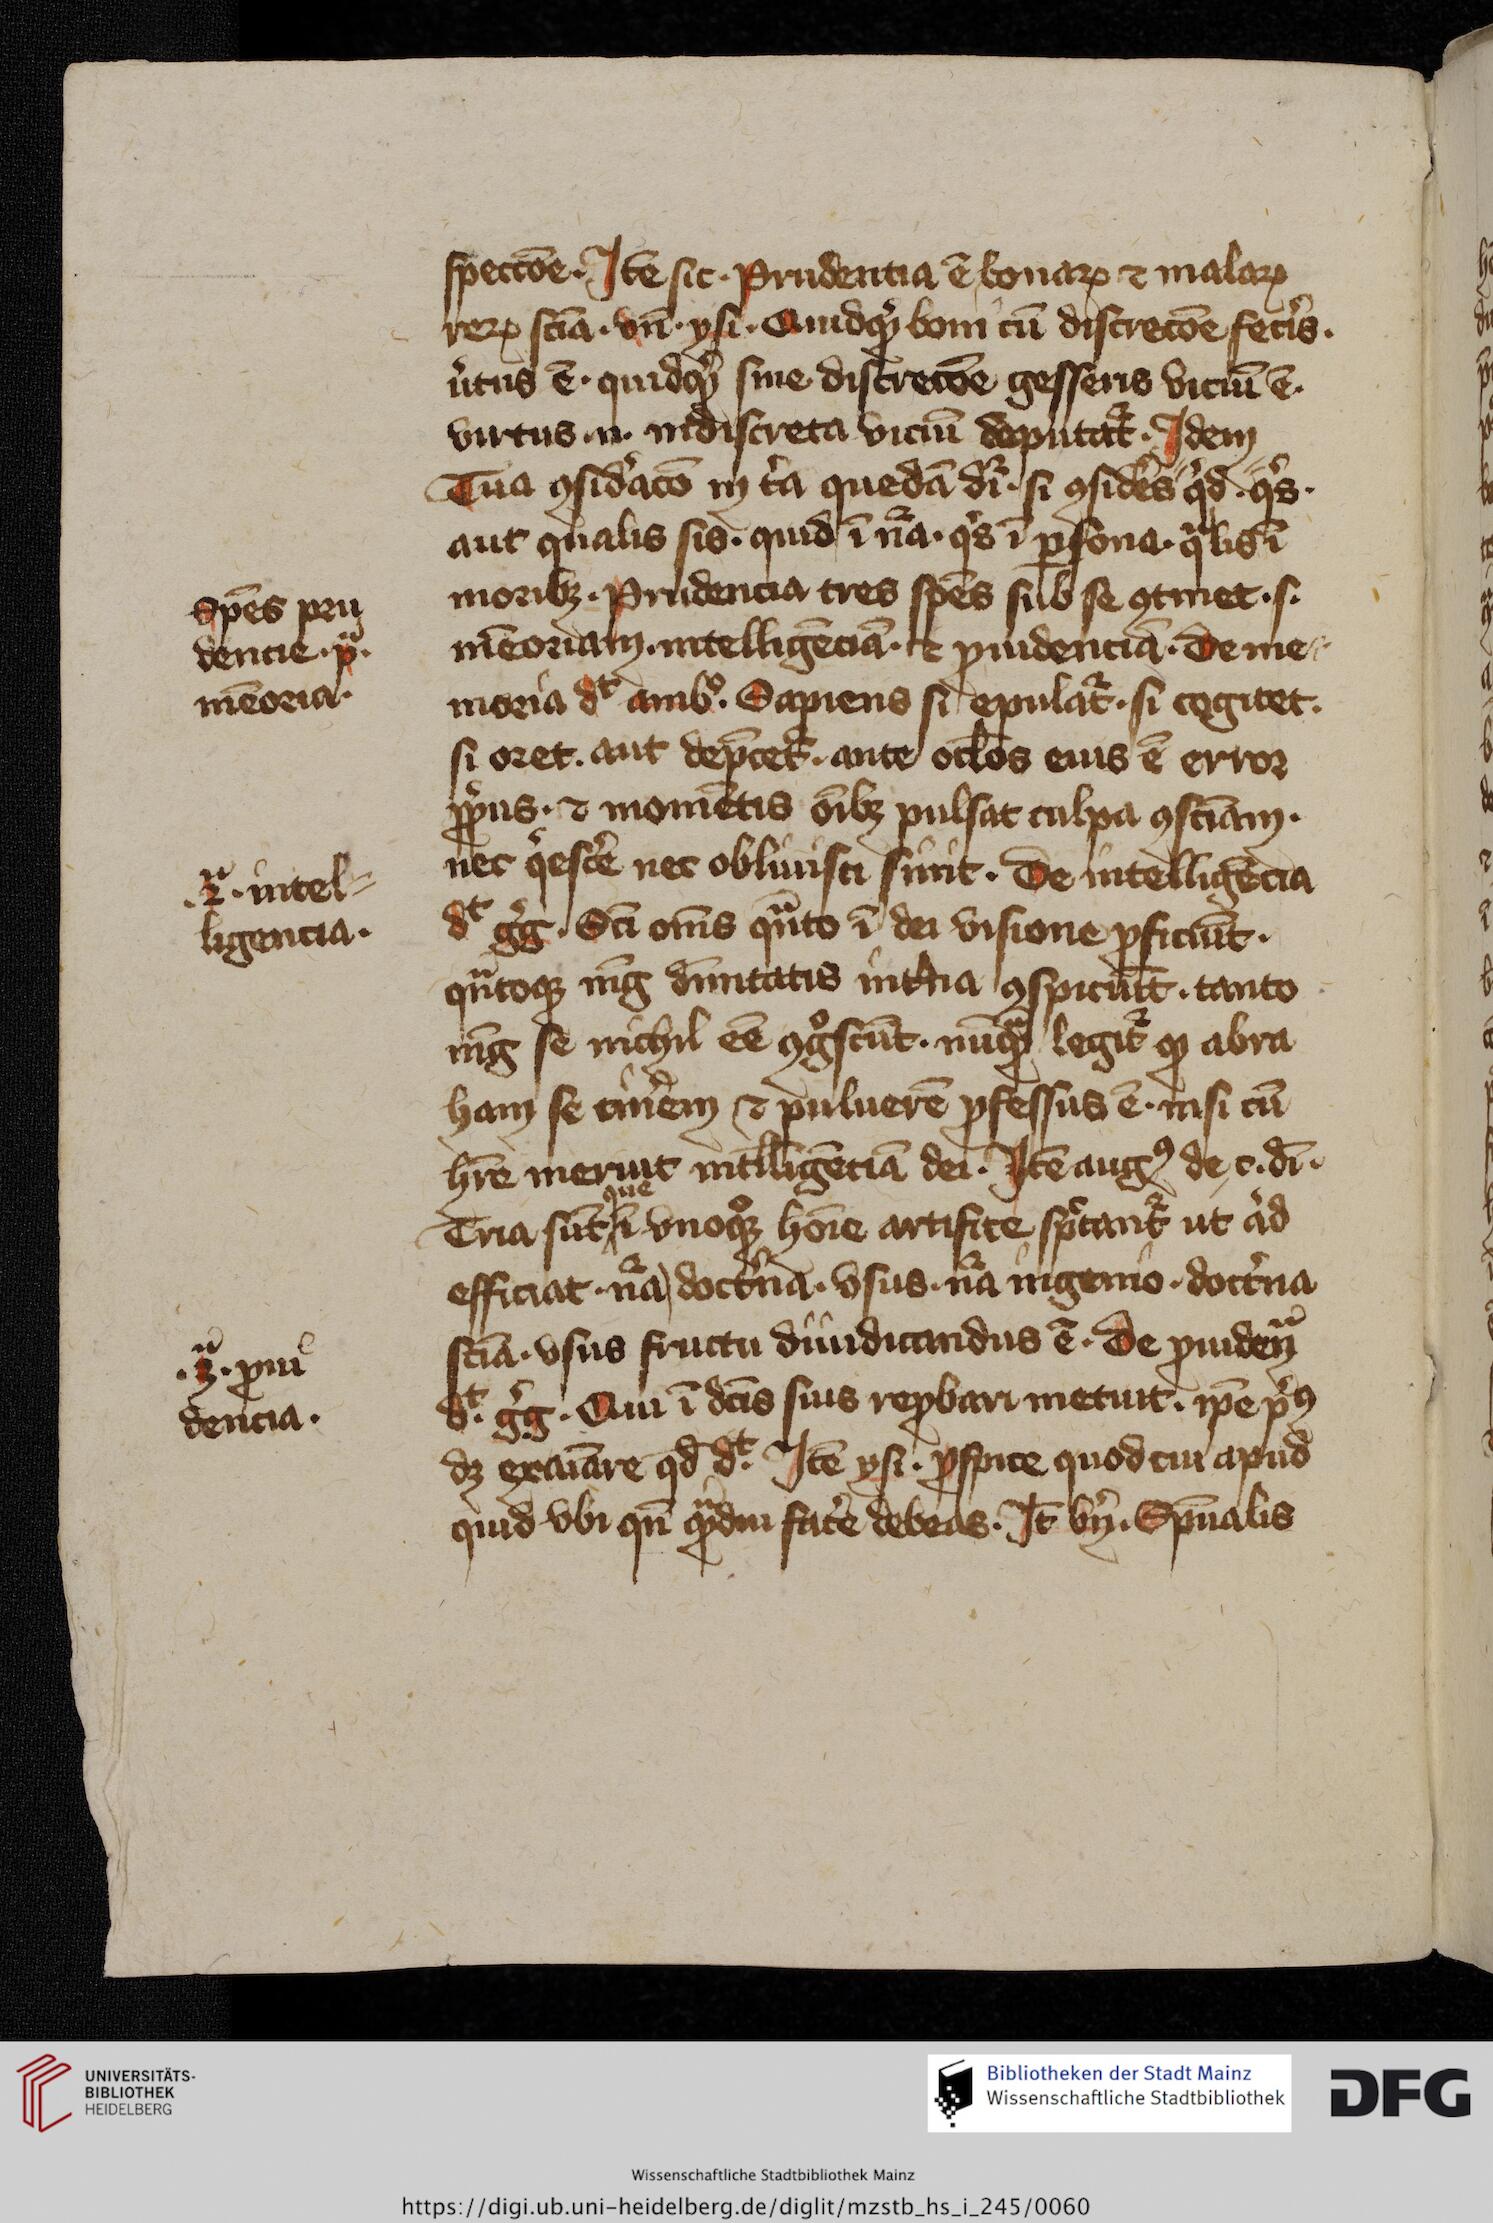 specc̄oe · Jtē sic · Prudentia ē bonaꝝ ⁊ malaꝝ
reꝝ scīa · vn̄ · ysi · Quidqͥꝫ boni cū discrec̄oe fecͥis ·
v̓tus ē · quidqͥꝫ sine discrec̄oe gesseris viciū ē ·
virtus · n · indiscreta viciū deputat᷑ · Jdem
Tua ꝯsid̓ac̄o in t̓a quedā di᷑ · si ꝯsid̓es qͥd · qͥs ·
aut qualis sis · quid ī nᷓa · qͥs ī ꝑsona · qᷓlis ī
moribꝫ · Prudencia tres spēs sub se ꝯtinet · s ·
mēoriam · intelligēciā · ⁊ ꝓuidenciā · De me-
moria dᵗ ambᵒ · Sapiens si epulat᷑ · si cogitet ·
si oret · aut dep̄cet᷑ · ante oc̄los eius ē error
ꝓpͥus · ⁊ momētis oībꝫ pulsat culpa ꝯscīam ·
nec qͥesc̓e nec obliuisci sinit · De intelligēcia
dᵗ gͥg · Sc̄i oms̄ qᷓnto ī dei visione ꝓficiūt ·
qᷓntoqꝫ mḡ diuinitatis intͥia ꝯspiciūt · tanto
mḡ se nichil eē ꝯgᵒscūt · nūqᷓꝫ legit᷑ ꝙ abra
ham se cin̓em ⁊ puluerē ꝓfessus ē · nisi cū
hr̄e meruit intll̄igēciā dei · Jtē augꝰ de c · dī ·
que
Tria sūt ī vnoqᵒꝫ hoīe artifice spc̄tant᷑ ut qͥd
efficiat · nᷓa doctͥna · vsus · nᷓa ingenio · doctͥna
scīa · vsus fructu diiudicandus ē · De ꝓuidenᷓ
dᵗ · gͥg · Qui ī dc̄is suis reꝓbari metuit · ip̄e pͥꝰ
dꝫ exaīare qd̄ dᵗ · Jtē ysi · ꝓspice quod cui apud
quid vbi qn̄ qᷓꝫdiu fac̓e debeas · Jt̄ bn̓ · Sp̄ualis
Spēs pru
dencie · pᷓ ·
mēoria ·
· 2ᷓ · intel-
ligencia ·
· 3ᷓ · ꝓui
dencia ·
UNIVERSITÄTS-
BIBLIOTHEK
HEIDELBERG
Bibliotheken der Stadt Mainz
Wissenschaftliche Stadtbibliothek
DFG
Wissenschaftliche Stadtbibliothek Mainz
https://digi.ub.uni-heidelberg.de/diglit/mzstb_hs_i_245/0060